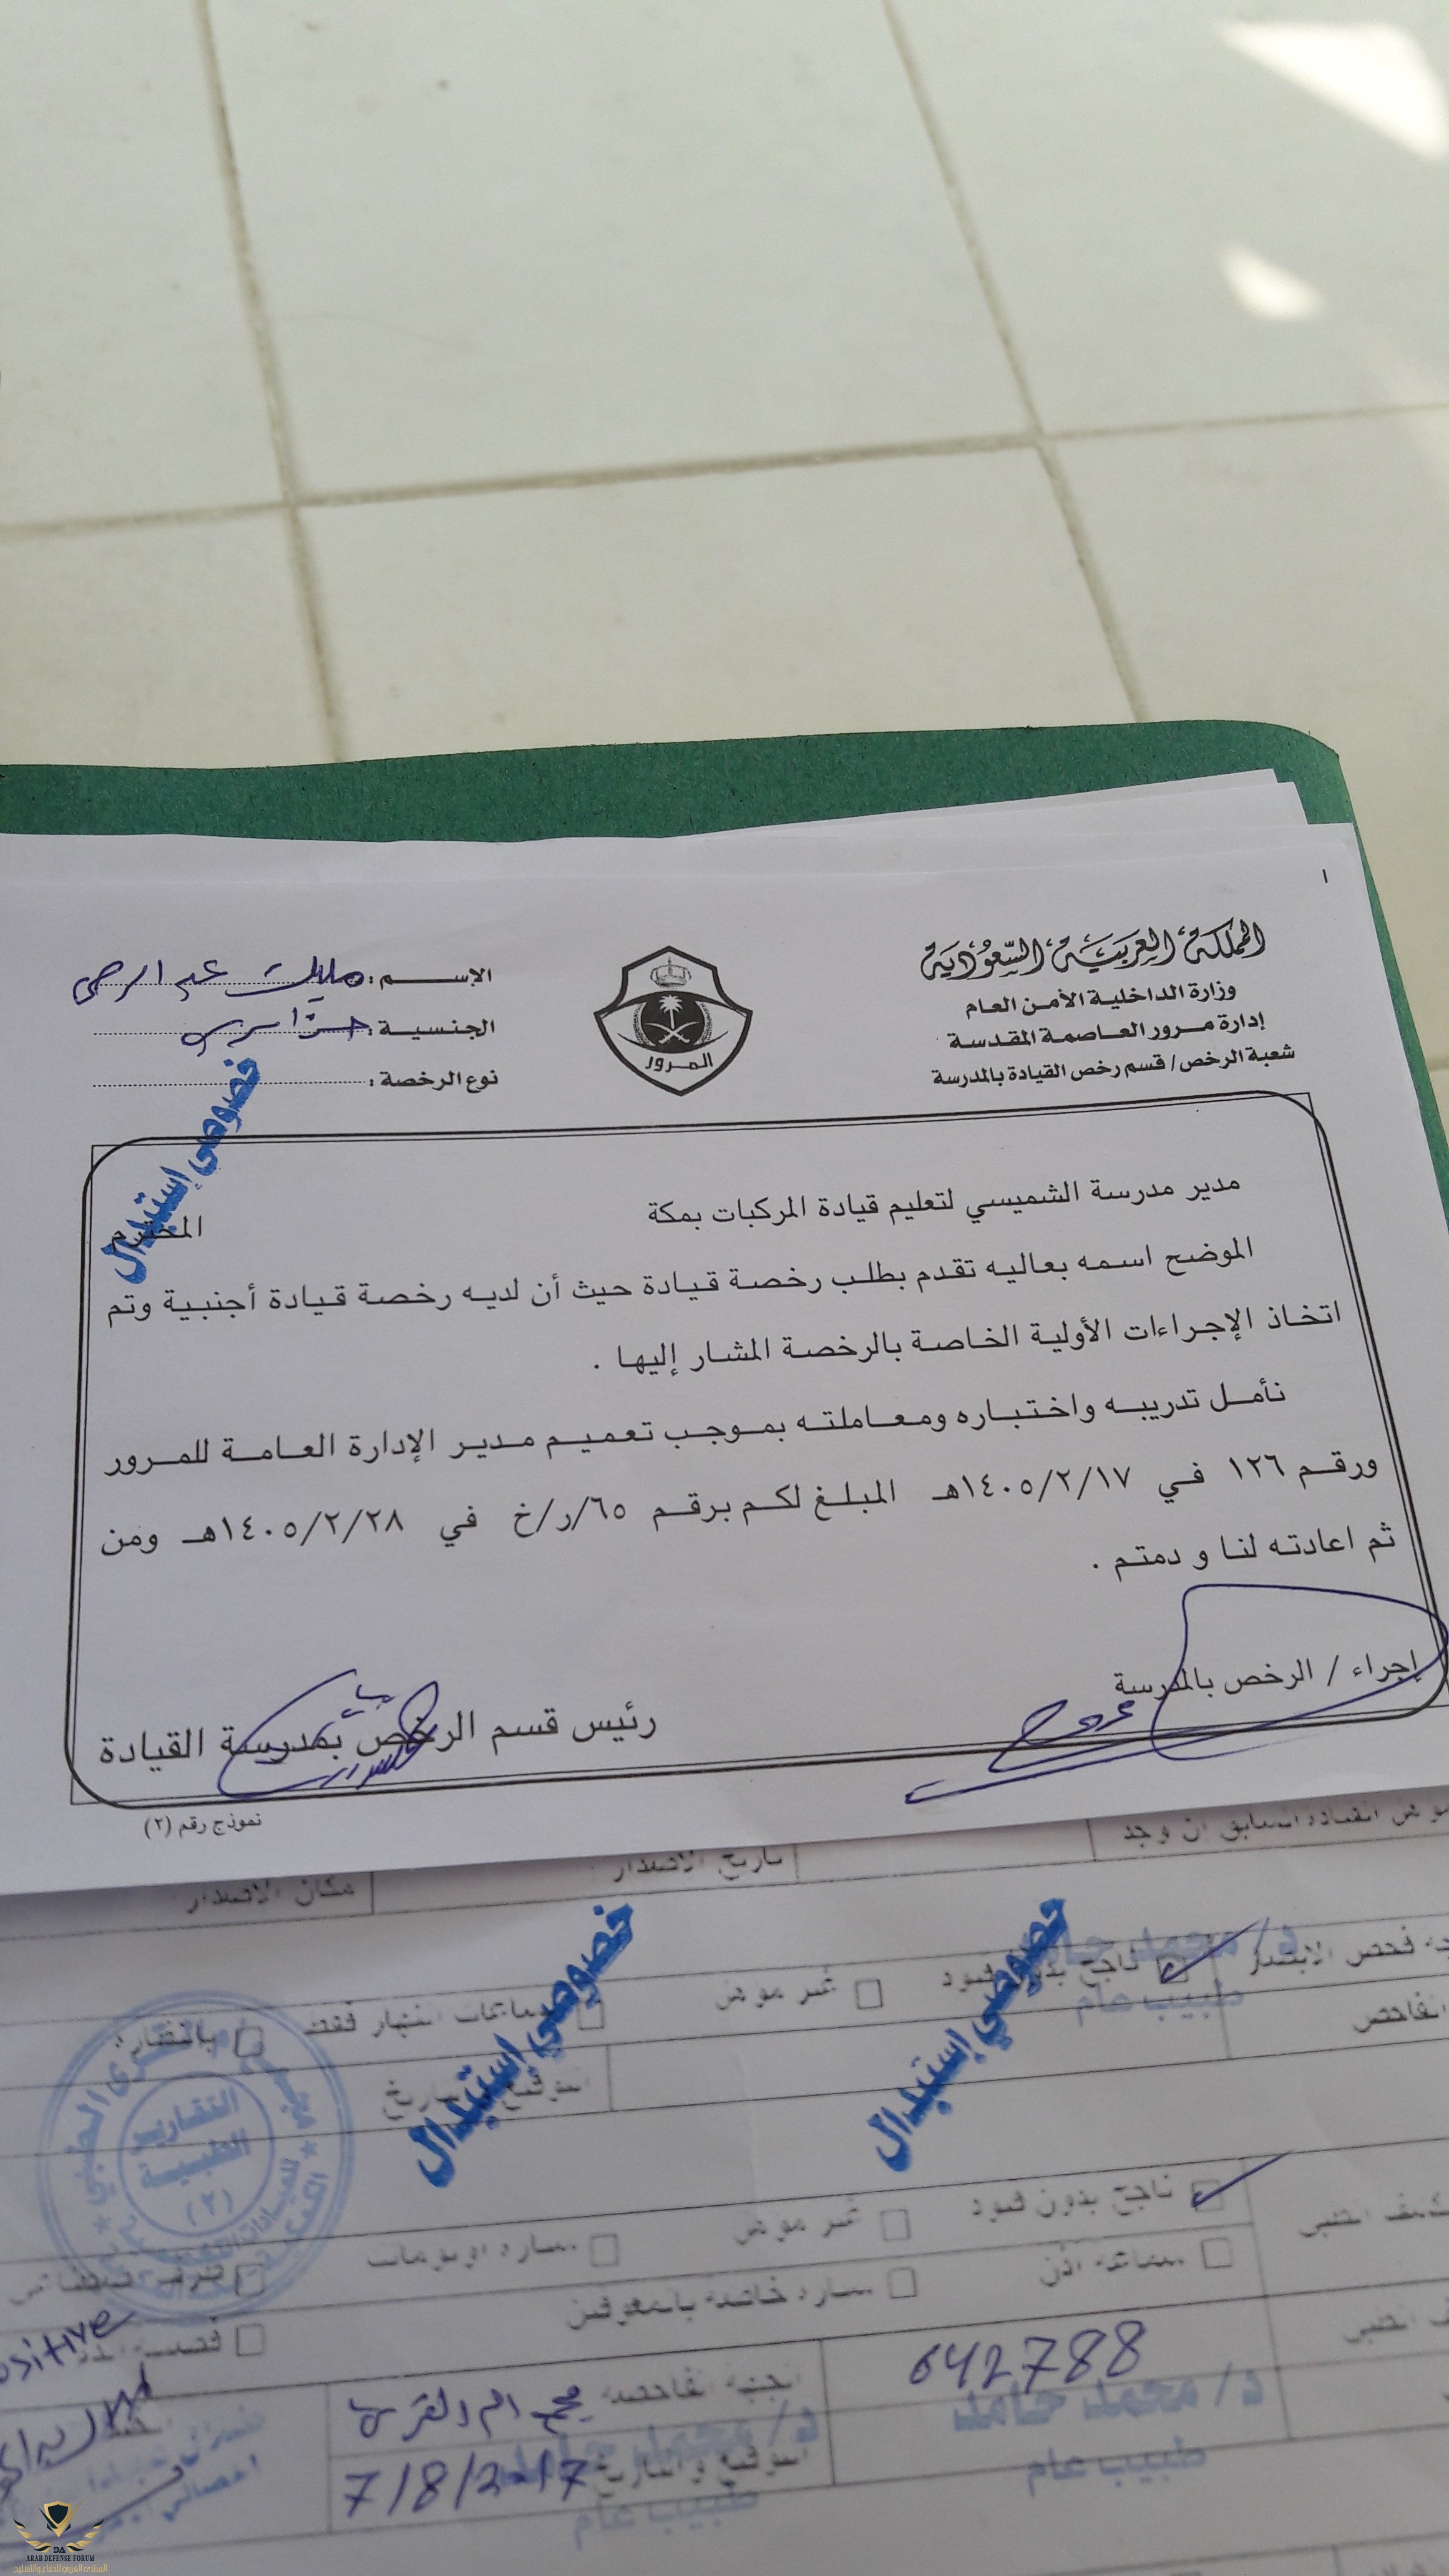 ١
المملكة العربية السعودية
وزارة الداخلية الأمن العام
إدارة مرور العاصمة المقدسة
شعبة الرخص / قسم رخص القيادة بالمدرسة
المرور
الاسم :
الجنسية : جزائري
نوع الرخصة :
خصوصي إستبدال
مدير مدرسة الشميسي لتعليم قيادة المركبات بمكة المحترم
الموضح اسمه بعاليه تقدم بطلب رخصة قيادة حيث أن لديه رخصة قيادة أجنبية وتم
اتخاذ الإجراءات الأولية الخاصة بالرخصة المشار إليها .
نأمل تدريبه واختباره ومعاملته بموجب تعميم مدير الإدارة العامة للمرور
ورقم ١٢٦ في ١٤٠٥/٢/١٧هـ المبلغ لكم برقم ٦٥/ر/خ في ١٤٠٥/٢/٢٨هـ ومن
ثم اعادته لنا و دمتم .
إجراء / الرخص بالمدرسة
رئيس قسم الرخص بمدرسة القيادة
نموذج رقم (٢)
السابق ان وجد
تاريخ الاصدار
مكان الاصدار
فحص الابصار
ناجح بدون قيود
غير موص
ساعات النهار فقط
بالنظارة
د/ محمد حامد
طبيب عام
الفاحص
خصوصي إستبدال
خصوصي إستبدال
التقارير
الطبية
(٢)
ناجح بدون قيود
غير موص
سماعة اذن
سيارة خاصة بالمعوقين
642788
د/ محمد حامد
طبيب عام
الجهة الفاحصة
التوقيع والتاريخ 7/8/2017
د/ محمد حامد
طبيب عام
DA
ARAB DEFENSE FORUM
المنتدى العربي للدفاع والتسليح